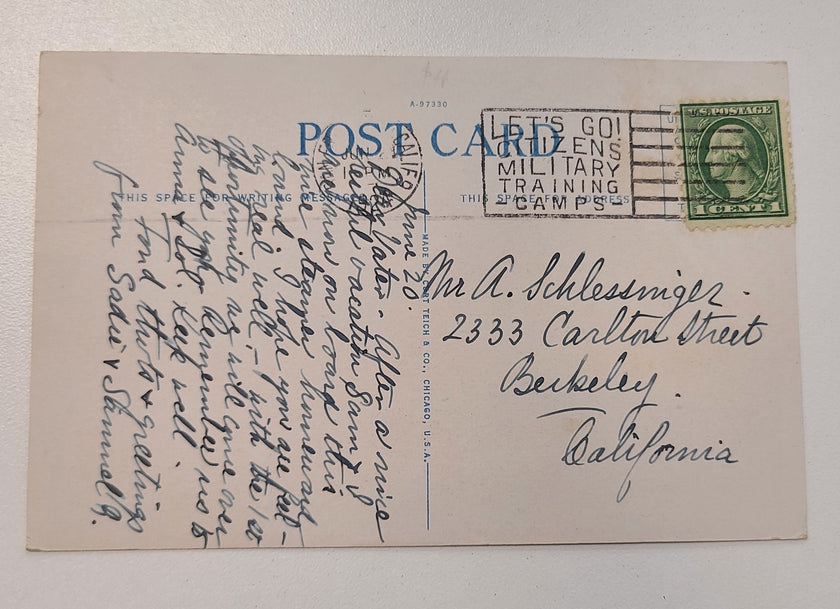 A-97330
POST CARD
CALIF
LET'S GO!
CITIZENS
MILITARY
TRAINING
- CAMPS -
U.S. POSTAGE
1 CENT 1
THIS SPACE FOR WRITING MESSAGES
THIS SPACE FOR ADDRESS
MADE BY CURT TEICH & CO., CHICAGO, U.S.A.
June 20.
After a nice
restful vacation Sam & I
are now on board this
fine steamer homeward
bound. I hope you are feel-
ing real well, - with the 1st
opportunity we will come over
to see you. Remember us to
Anna & Sol. Keep well.
Fond thots & greetings
from Sadie & Samuel G.
Mr A. Schlessinger.
2333 Carlton Street
Berkeley.
California